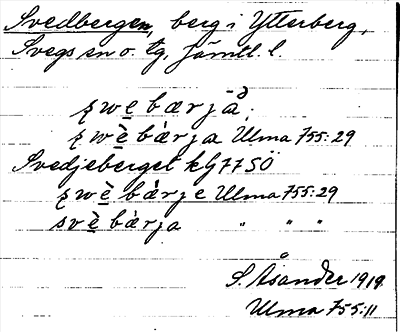 Svedbergen, berg i Ytterberg,
Svegs sn o. tg, Jämtl. l.
ʂwe bærjä̆;
ʂwè bærja Ulma 755:29
Svedjeberget kG77SÖ
ʂwè bærje Ulma 755:29
svè bærja " " "
S. Åsander 1919.
Ulma 755:11